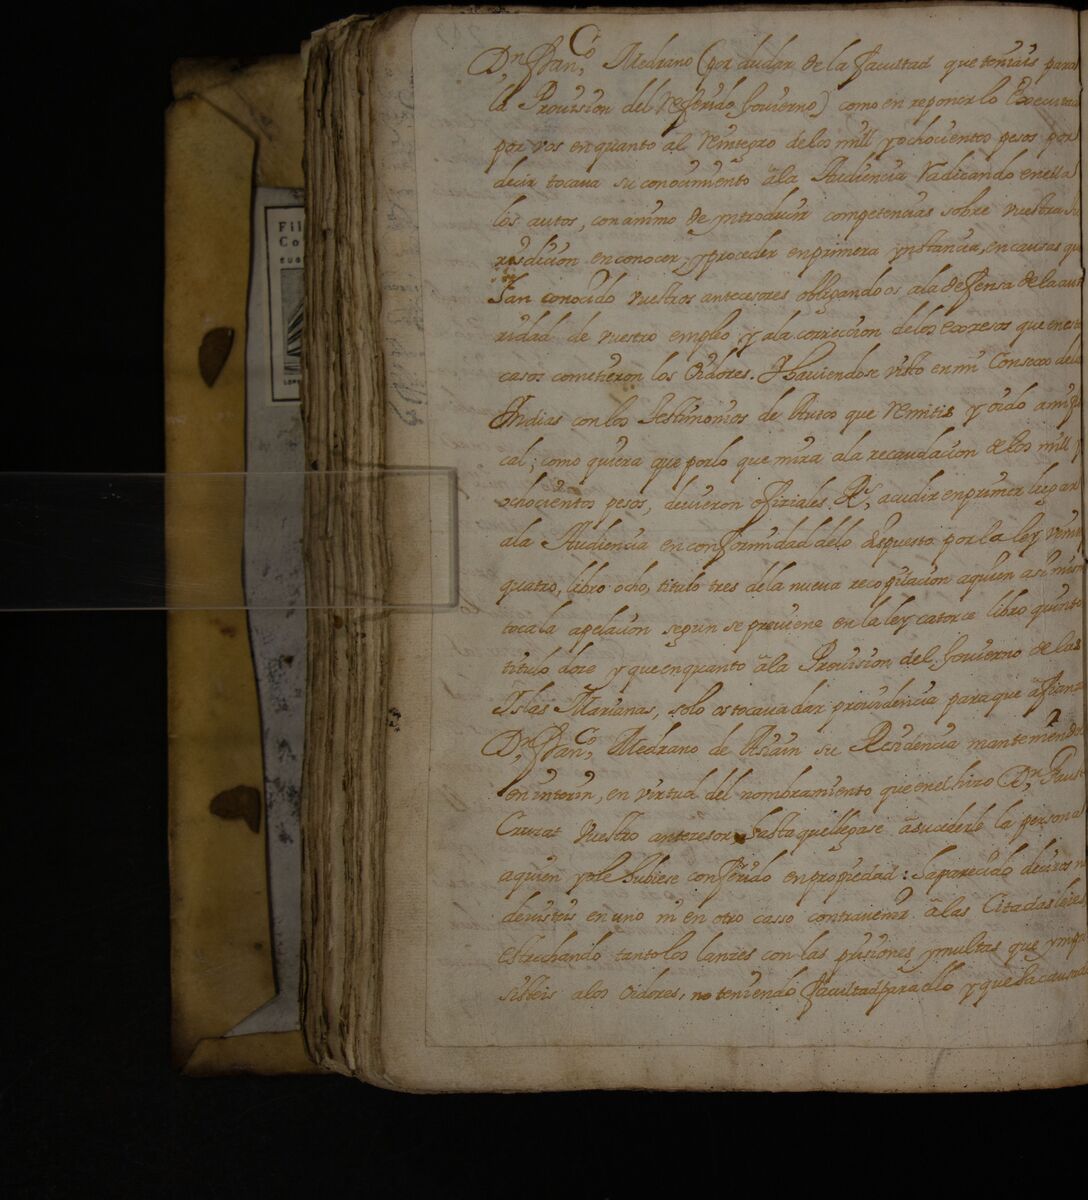 Dn. Franco. Medrano (por dudar de la facultad que teniais para
la Provision del Referido Govierno) como en reponer lo Executado
por vos en quanto al Reintegro de los mill y ochocientos pesos por
decir tocava su conocimiento â la Audiencia Radicando en ella
los autos, con animo de yntroducir competencias sobre vuestra Ju
risdicion en conocer, y proceder en primera ynstancia, en causas que
han conocido vuestros antecesores obligandoos a la defensa de la auto
ridad de vuestro empleo y a la correccion de los excesos que en estos
casos cometieron los Oidores. Y haviendose visto en mi Consexo de las
Indias con los Testimonios de Autos que Remitis y oido a mi fis
cal; como quiera que por lo que mira a la recaudacion de los mill y
ochocientos pesos, devieron ofiziales Rs. acudir en primer lugar
a la Audiencia en conformidad de lo dispuesto por la ley veinte
quatro, libro ocho, titulo tres de la nueva recopilacion aquien asimismo
toca la apelacion segun se previene en la ley catorce libro quinto
titulo doze y que en quanto â la Provision del Govierno de las
Islas Marianas, solo os tocava dar providencia para que afianzase
Dn. Franco. Medrano de Asiain su Residencia manteniendole
en interin, en virtud del nombramiento que en el hizo Dn. Fausto
Cruzat vuestro antezesor hasta que llegase â sucederle la persona
aquien yo le hubiese conferido en propiedad: Ha parecido deciros no
devisteis en uno ni en otro casso contravenir â las Citadas leies
estrechando tanto los lanzes con las prisiones y multas que ympu
sisteis a los Oidores, no teniendo facultad para ello y que ha causado
Fil
Co